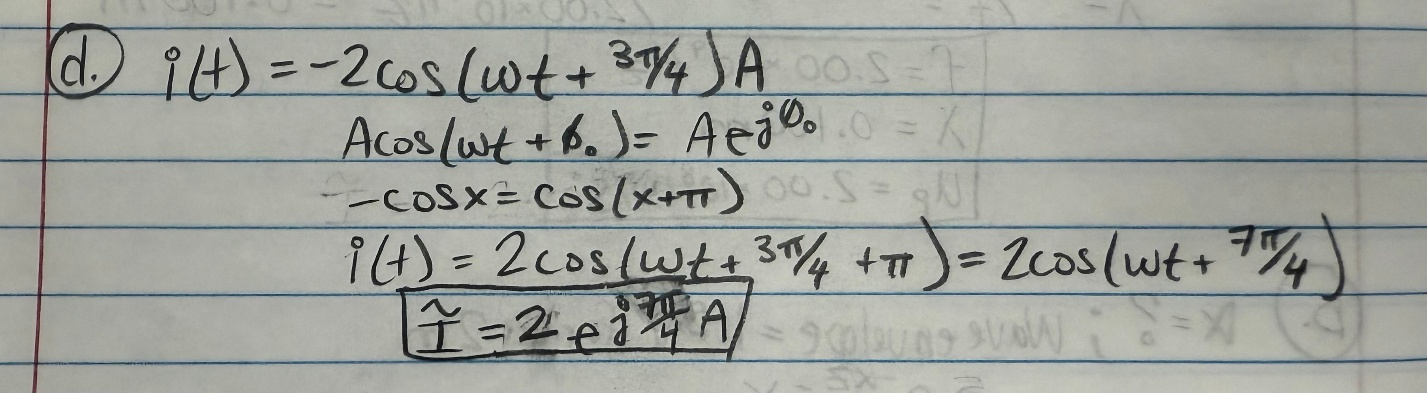 d. i(t) = -2cos(ωt + 3π/4)A
Acos(ωt + ϕ₀) = Ae^jϕ₀
-cosx = cos(x+π)
i(t) = 2cos(ωt + 3π/4 + π) = 2cos(ωt + 7π/4)
Ĩ = 2e^j7π/4 A